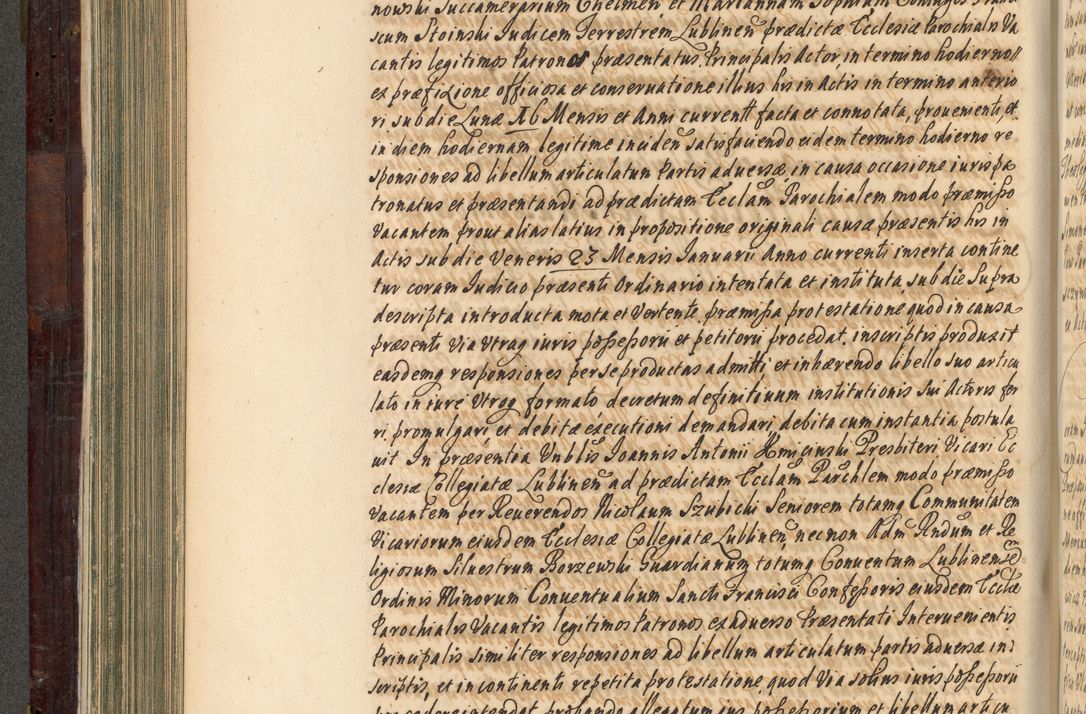 nowski Succamerarium Chelmen et Mariannam Sophiam Coniuges Franci
scum Stoinski Judicem Terrestrem Lublineñ prædictæ Ecclesiæ Parochialis Va
cantis legitimos Patronos præsentatus, Principalis Actor, in termino hodierno
ex præfixione officiosa et conservatione illius his in Actis in termino anterio
ri sub die Lunæ 16 Mensis et Anni currentt facta et connotata, provenienti, et
in diem hodiernam legitime inciden satisfaciendo eidem termino hodierno re
sponsiones ad libellum articulatum Partis adversæ in causa occasione iuris pa
tronatus et præsentandi ad prædictam Ecclam Parochialem modo præmisso
Vacantem prout alias latius in propositione originali causæ præsentis his in
Actis sub die Veneris 23 Mensis Januarii Anno currenti inserta contine
tur coram Judicio præsenti Ordinario intentata et instituta, sub die Supra
descripta introducta mota et Vertente præmissa protestatione quod in causa
præsenti Via Utraq iuris possessorii et petitorii procedat, in scriptis produxit
easdemq responsiones per se productas admitti, et inhærendo libello suo articu
lato in iure Utroq formato decretum definitivum institutionis sui Actoris fer
ri promulgari, et debitæ executioni demandari, debita cum instantia postula
vit In præsentia Vnblis Joannis Antonii Hmicinski Presbiteri Vicari Ec
clesiæ Collegiatæ Lublineñ ad prædictam Ecclam Parchlem modo præmisso
Vacantem per Reverendos Nicolaum Szubicki Seniorem totamq Communitatem
Vicariorum eiusdem Ecclesiæ Collegiatæ Lublineñ, nec non Adm Rndum et Re
ligiosum Silvestrum Borzewski Guardianum totumq Conventum Lublinensem
Ordinis Minorum Conventualium Sancti Francisci Confessoris eiusdem Ecclæ
Parochialis Vacantis legitimos Patronos ex adverso Præsentati Intervenientis
Principalis similiter responsiones ad libellum articulatum partis adversæ in
scriptis, et in continenti repetita protestatione quod Via solius iuris possessorii
intendat, probando allegatum ius possessorium et libellum articu